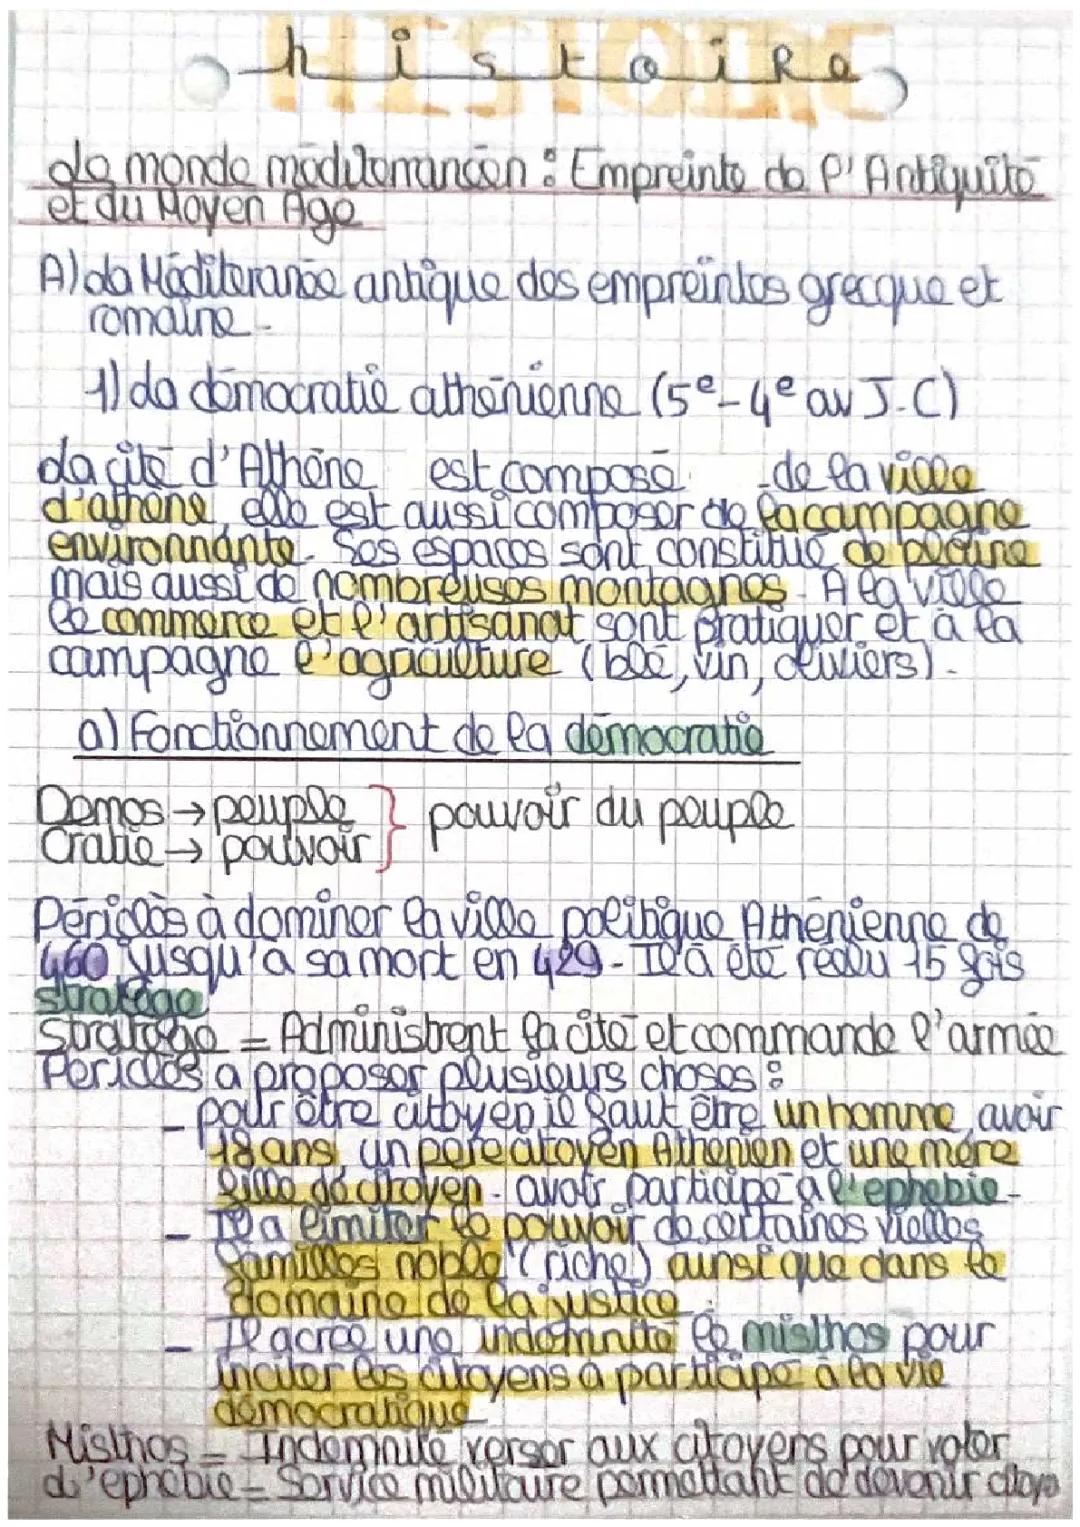 histoire
HISTOIRE
Le monde méditerranéen : Empreinte de l'Antiquité
et du Moyen Age
A) La Méditeranée antique des empreintes grecque et
romaine.
1) La démocratie athénienne (5e-4e av J.C)
La cité d'Athène est composé de la ville
d'athène, elle est aussi composer de la campagne
environnante. Ses espaces sont constitué de plaine
mais aussi de nombreuses montagnes. A la ville
le commerce et l'artisanat sont pratiquer et à la
campagne l'agriculture (blé, vin, oliviers).
a) Fonctionnement de la démocratie
Demos → peuple } pouvoir du peuple
Cratie → pouvoir
Périclès à dominer la ville politique Athénienne de
460 jusqu'a sa mort en 429. Il a été réélu 15 fois
stratège
Stratège = Administrent la cité et commande l'armée
Périclès a proposer plusieurs choses :
- pour être citoyen il faut être un homme, avoir
18 ans, un père citoyen Athénien et une mère
fille de citoyen. avoir participé a l'ephebie.
- Il a limiter le pouvoir de certaines vielles
familles noble (riche) ainsi que dans le
domaine de la justice
- Il a crée une indemnité le misthos pour
inciter les citoyens a participé à la vie
démocratique
Misthos = Indemnité verser aux citoyens pour voter
L'ephébie = Service militaire permettant de devenir citoye